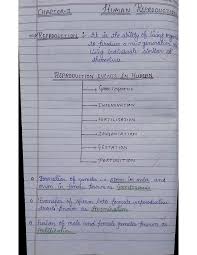 CHAPTER-2 HUMAN REPRODUCTION
REPRODUCTION : It is the ability of living
to produce a new generation
living individuals similar to
themselves
REPRODUCTION EVENTS IN HUMAN
GAMETOGENESIS
INSEMINATION
FERTILISATION
IMPLANTATION
GESTATION
PARTURITION
Formation of gametes i.e sperm in male and
ovum in female known as Gametogenesis
Transfer of sperm into female reproductive
tract known as Insemination
Fusion of male and female gamete known as
Fertilisation